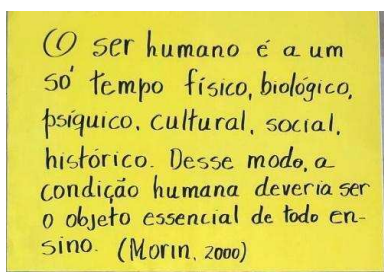 O ser humano é a um
só tempo físico, biológico,
psíquico, cultural, social,
histórico. Desse modo, a
condição humana deveria ser
o objeto essencial de todo en-
sino. (Morin, 2000)